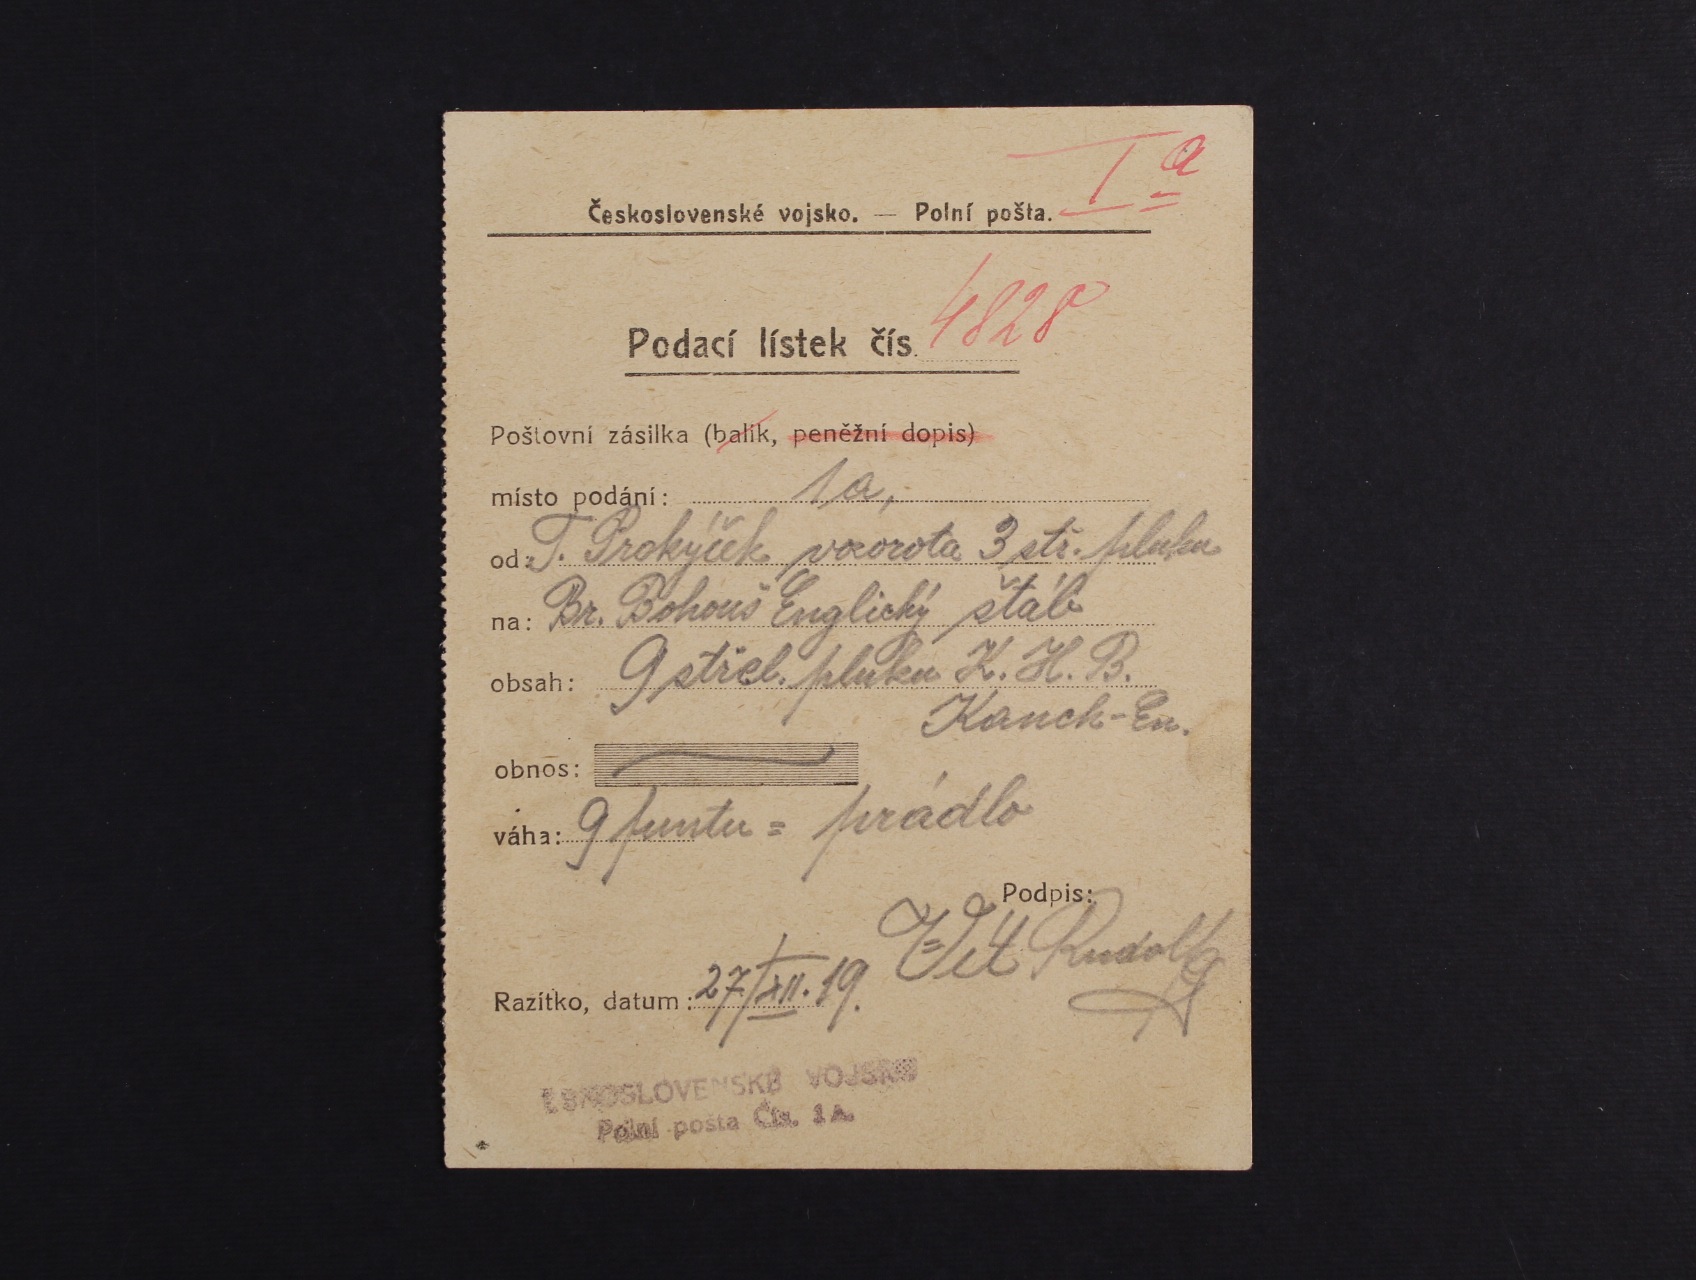 I a
Československé vojsko. — Polní pošta.
Podací lístek čís. 4828
Poštovní zásilka (balík, peněžní dopis)
místo podání: 1a,
od: T. Prokýšek 3 stř. pluku
na: Br. Bohouš Englický štáb
obsah: 9 střel. pluku K. H. B.
Kanch-En.
obnos:
váha: 9 funtu = prádlo
Podpis:
Vít Rudolf
Razítko, datum: 27/XII. 19.
VOJSKO
Polní pošta Čís. 1A.